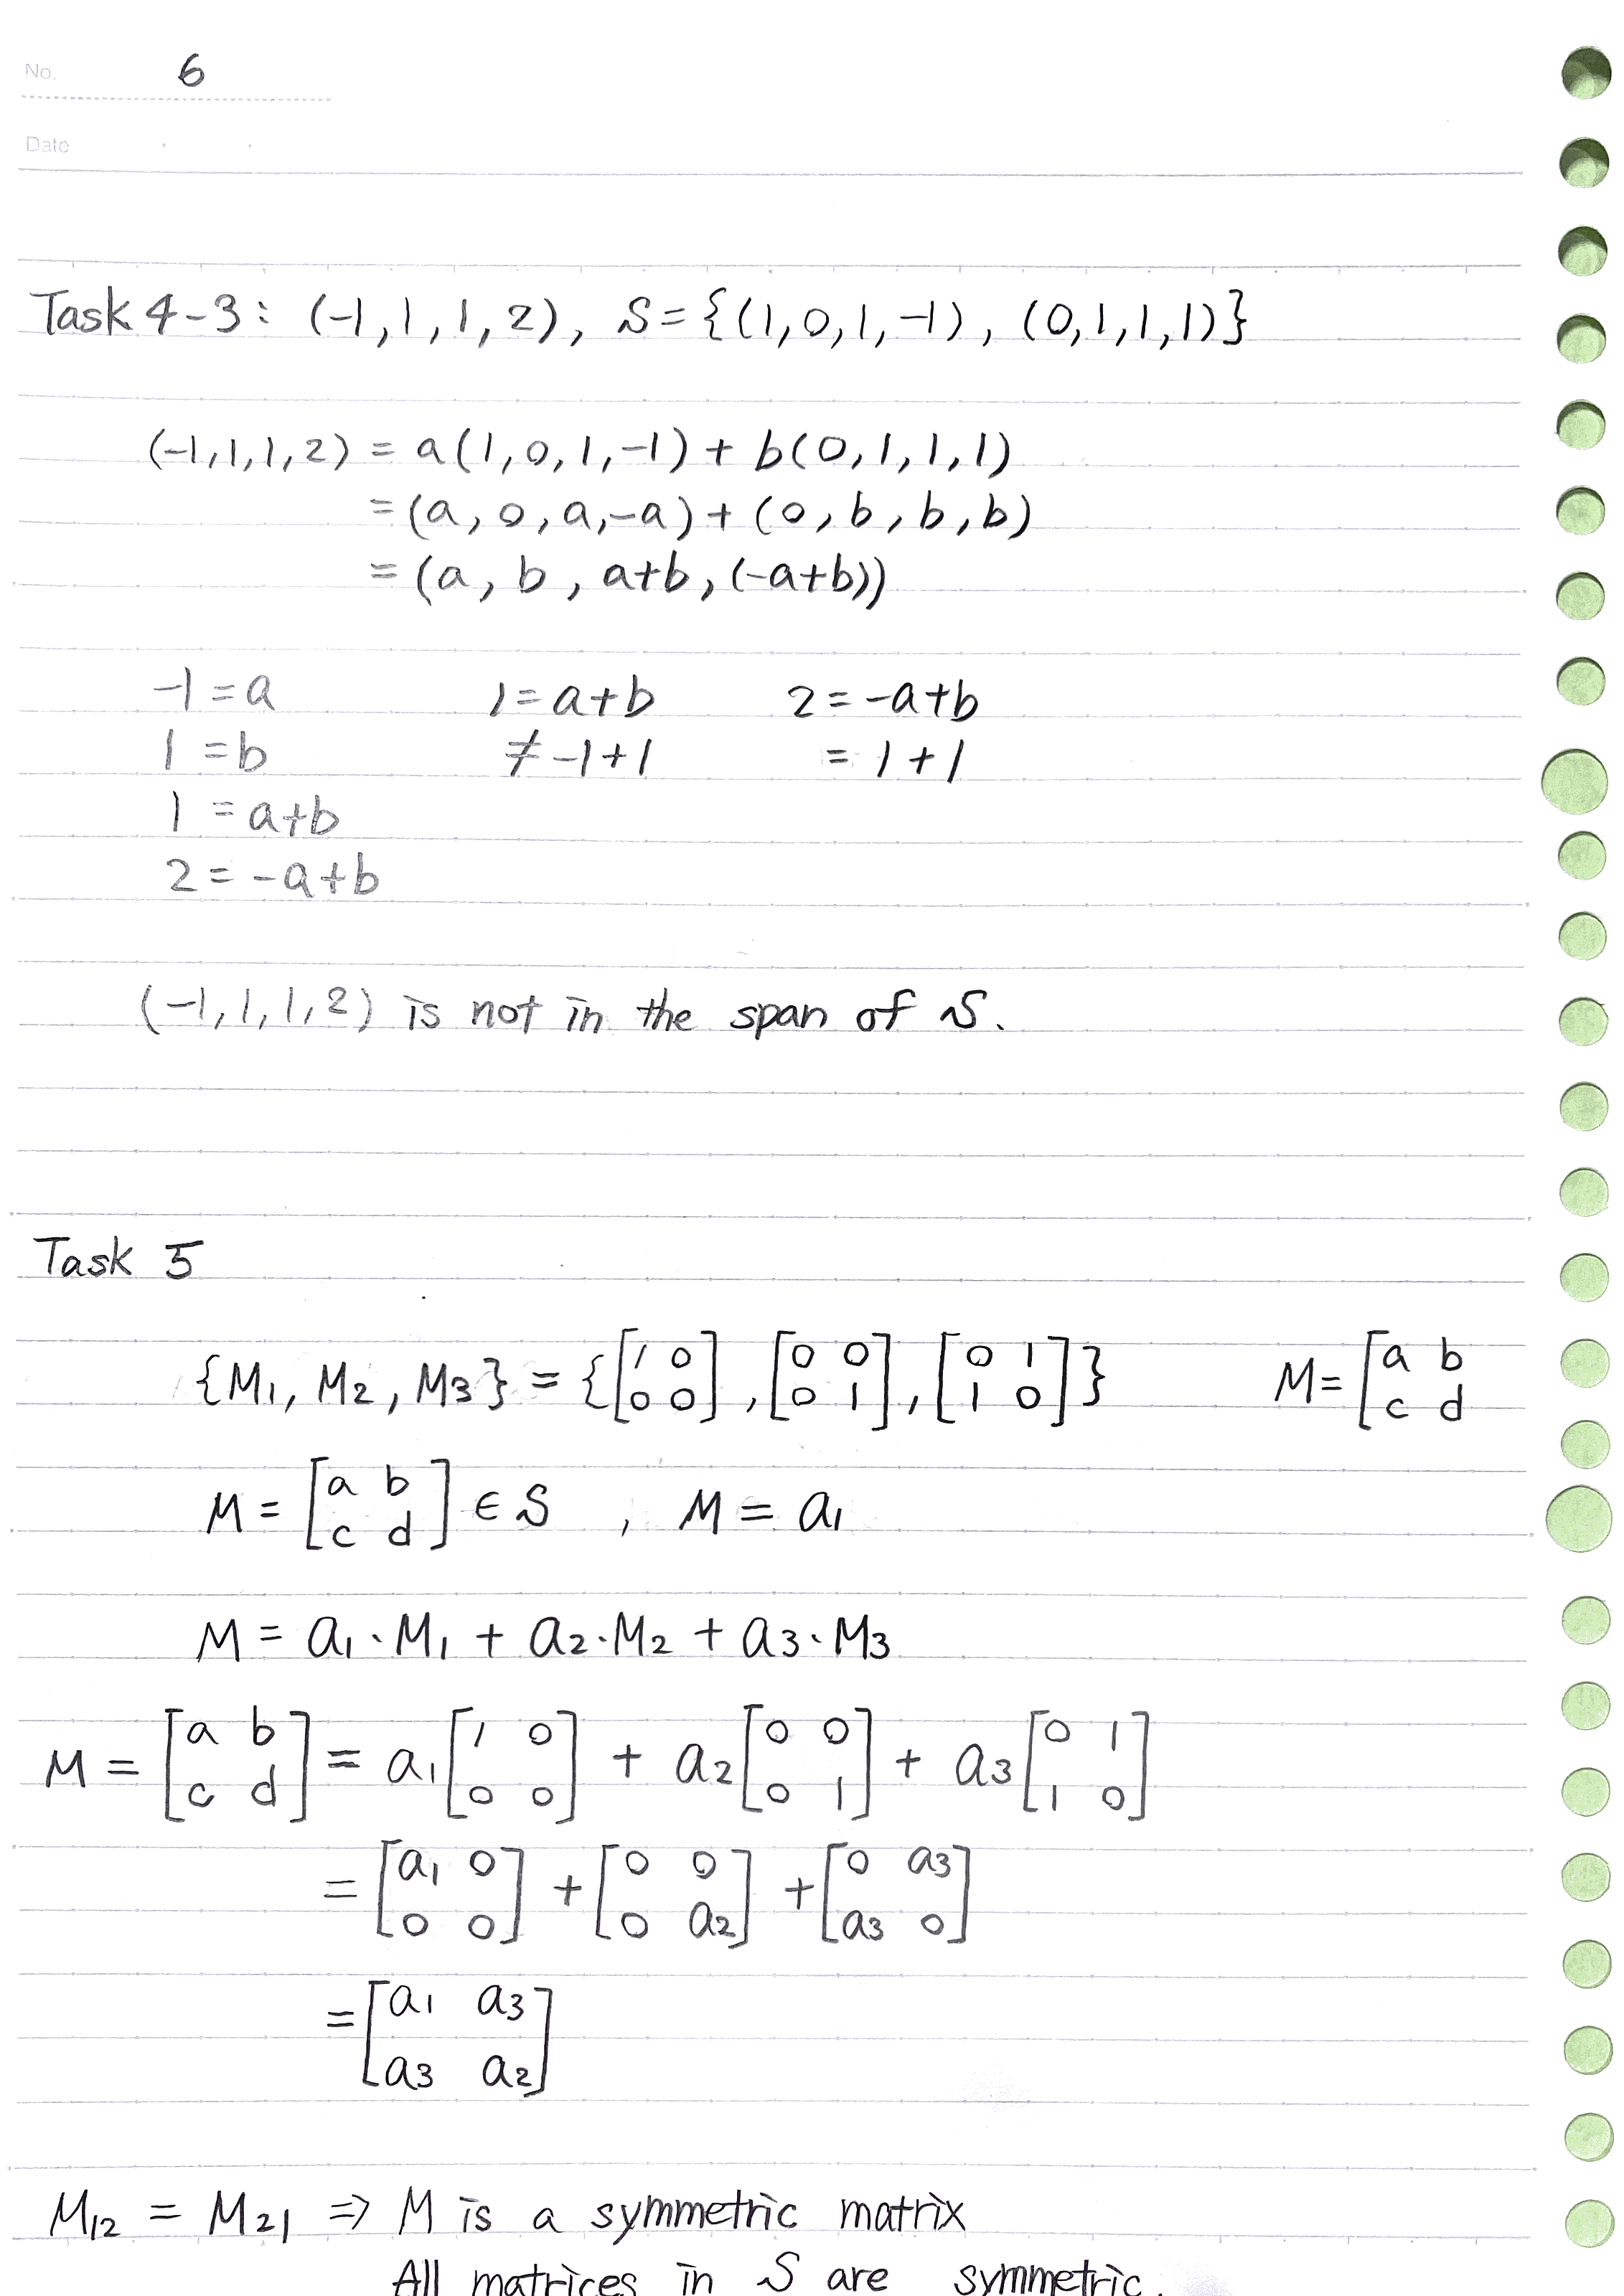 No. 6
Date
Task 4-3: (-1,1,1,2), S={(1,0,1,-1), (0,1,1,1)}
(-1,1,1,2) = a(1,0,1,-1) + b(0,1,1,1)
=(a,0,a,-a)+(0,b,b,b)
=(a,b,a+b,(-a+b))
-1=a 1=a+b 2=-a+b
1=b ≠-1+1 =1+1
1=a+b
2=-a+b
(-1,1,1,2) is not in the span of S.
Task 5
{M1, M2, M3} = {[1 0; 0 0], [0 0; 0 1], [0 1; 1 0]} M=[a b; c d
M=[a b; c d] ∈ S , M = a1
M = a1·M1 + a2·M2 + a3·M3
M = [a b; c d] = a1[1 0; 0 0] + a2[0 0; 0 1] + a3[0 1; 1 0]
= [a1 0; 0 0] + [0 0; 0 a2] + [0 a3; a3 0]
= [a1 a3; a3 a2]
M12 = M21 => M is a symmetric matrix
All matrices in S are symmetric.